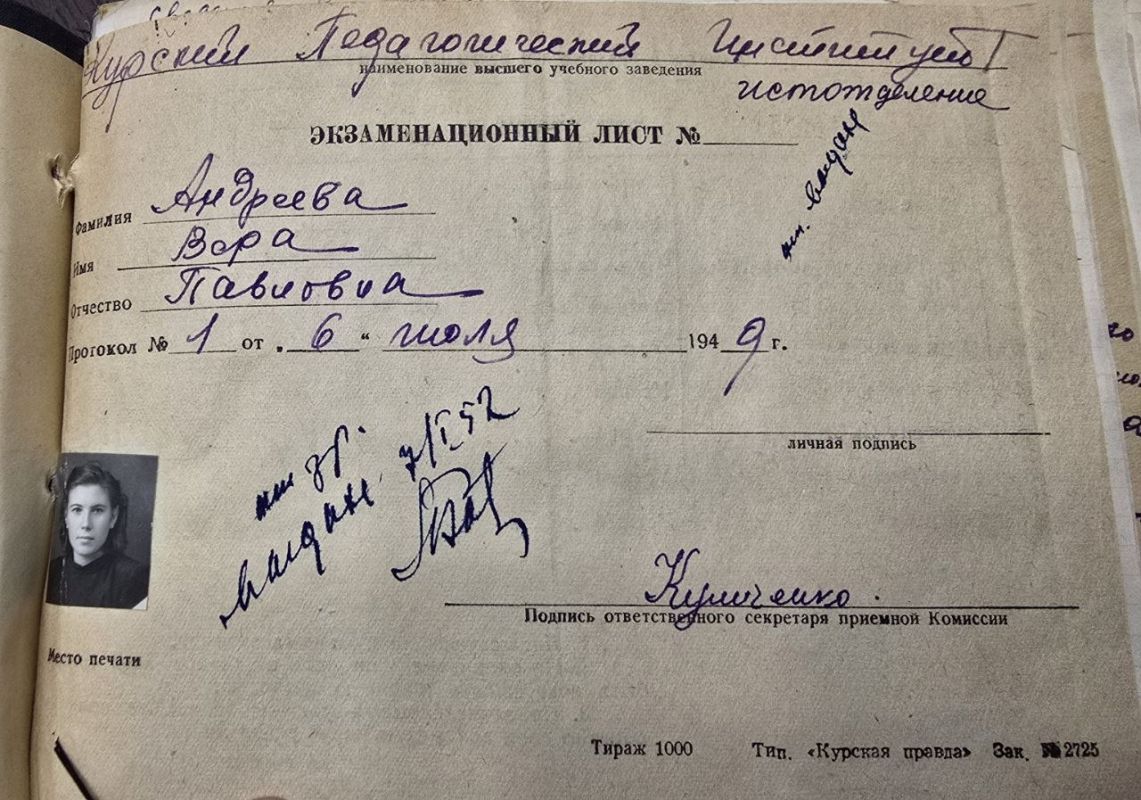 Курский Педагогический Институт
наименование высшего учебного заведения
истотделение
ЭКЗАМЕНАЦИОННЫЙ ЛИСТ №
Фамилия Андреева
Имя Вера
Отчество Павловна
Протокол № 1 от „ 6 “ июля 1949 г.
личная подпись
выдан 7/I 52
Куличенко
Подпись ответственного секретаря приемной Комиссии
Место печати
Тираж 1000 Тип. «Курская правда» Зак. № 2725